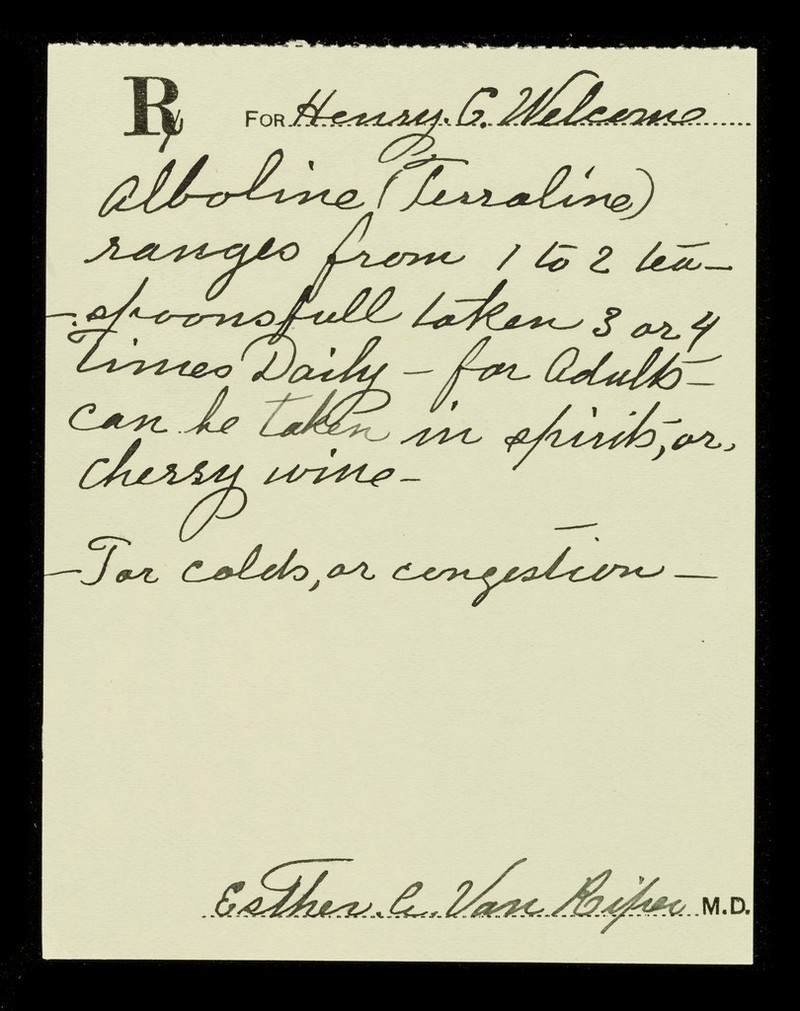 Rx FOR Henry. C. Welcome
Alboline (Terraline)
ranges from 1 to 2 tea–
–spoonsfull taken 3 or 4
Times Daily – for Adults –
can be taken in spirits, or,
cherry wine –
– For colds, or congestion –
Esther. C. Van Riper M.D.